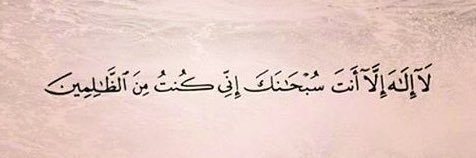 لَآ إِلَٰهَ إِلَّآ أَنتَ سُبْحَٰنَكَ إِنِّي كُنتُ مِنَ ٱلظَّٰلِمِينَ